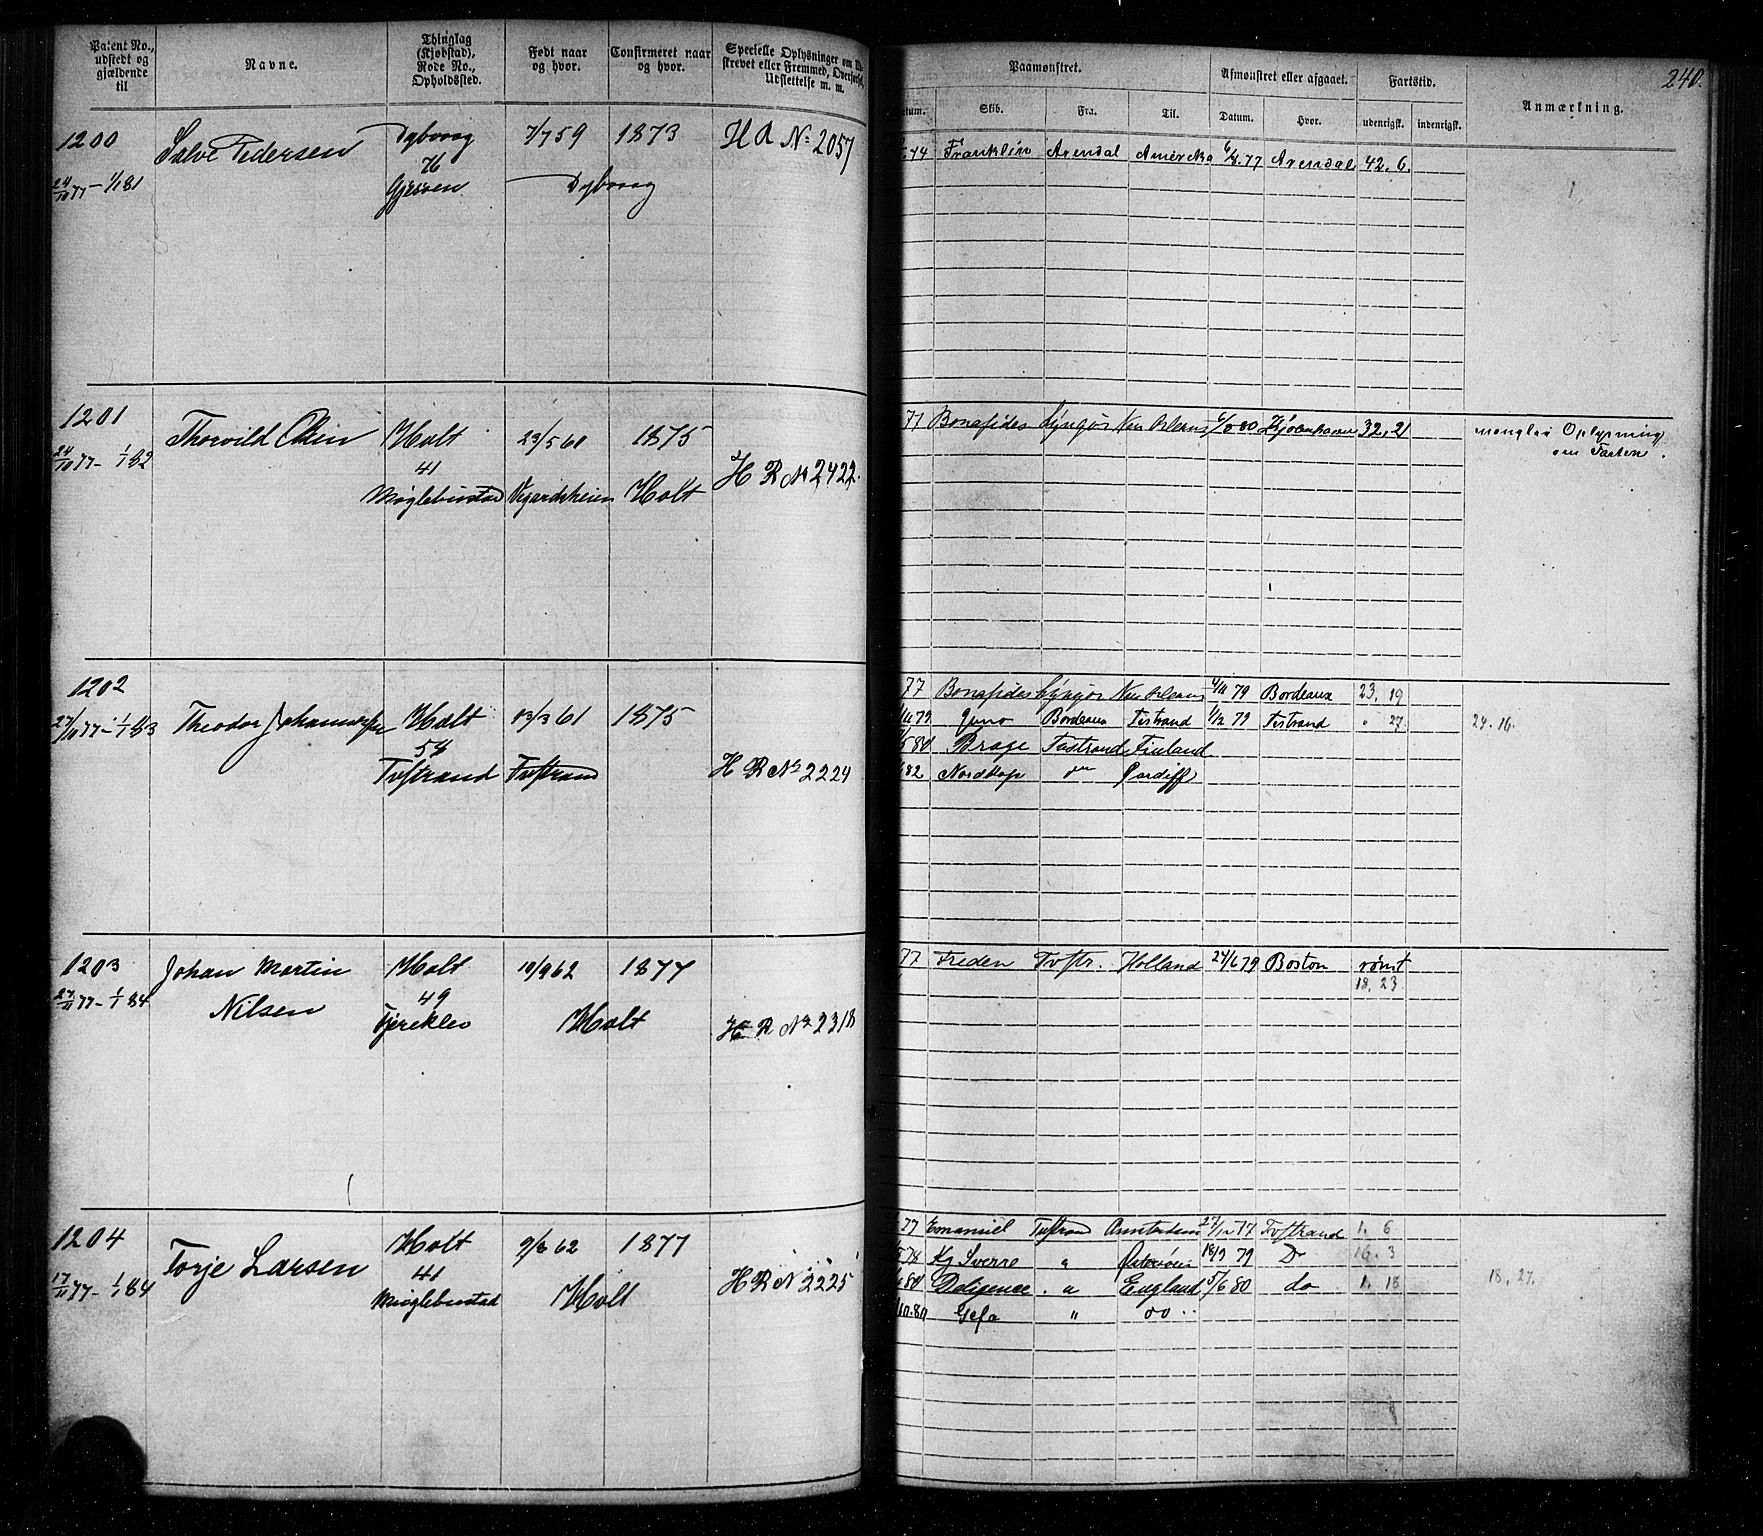 Patent No., udstedt og gjældende til
Navne.
Thinglag (Kjøbstad), Rode No., Opholdssted.
Født naar og hvor.
Confirmeret naar og hvor.
Specielle Oplysninger om Ud-
skrevet eller Fremmed, Overførsel,
Udslettelse m. m.
Paamønstret.
Afmønstret eller afgaaet.
Fartstid.
Anmærkning.
240.
Skib.
Fra.
Til.
Datum.
Hvor.
udenrigsk.
indenrigsk.
1200
24/10 77 – 1/1 81
Salve Pedersen
Dybvaag
76
Gjerven
7/7 59
1873
Dybvaag
H A No 2057
74 Franklin Arendal Amerika 6/8 77 Arendal 42. 6.
1201
24/10 77 – 1/1 82
Thorvild Olsen
Holt
41
Møglebustad
23/5 60
Vegardsheien
1875
Holt
H R No 2422.
77 Bonafides Lyngør New Orleans 80 Kjøbenhavn 32, 21
mangler Oplysning
om Farten.
1202
27/10 77 – 1/1 83
Theodor Johannesen
Holt
54
Tvedestrand
13/3 61
Tvedestrand
1875
H R No 2224
77 Bonafides Lyngør New Orleans 4/11 79 Bordeaux 23, 19
79 Juno Bordeaux Testrand 1/12 79 Testrand " 27
24. 16.
80 Brage Testrand Finland
82 Nordkap Cardiff
1203
27/11 77 – 1/1 84
Johan Martin
Nilsen
Holt
49
Fjereklev
10/9 62
1877
Holt
H R No 2318
77 Freden Tvstr. Holland 24/6 79 Boston rømt
18. 23
1204
17/11 77 – 1/1 84
Torje Larsen
Holt
41
Møglebustad
9/8 62
1877
Holt
H R No 2225
77 Emanuel Tvstrand Amsterdam 27/12 77 Tvstrand 1. 6
78 Kg Sverre " 18/9 79 Do 16. 3
80 Deligence " England 5/6 80 do 1. 18
18. 27.
10.80 Gefa " do